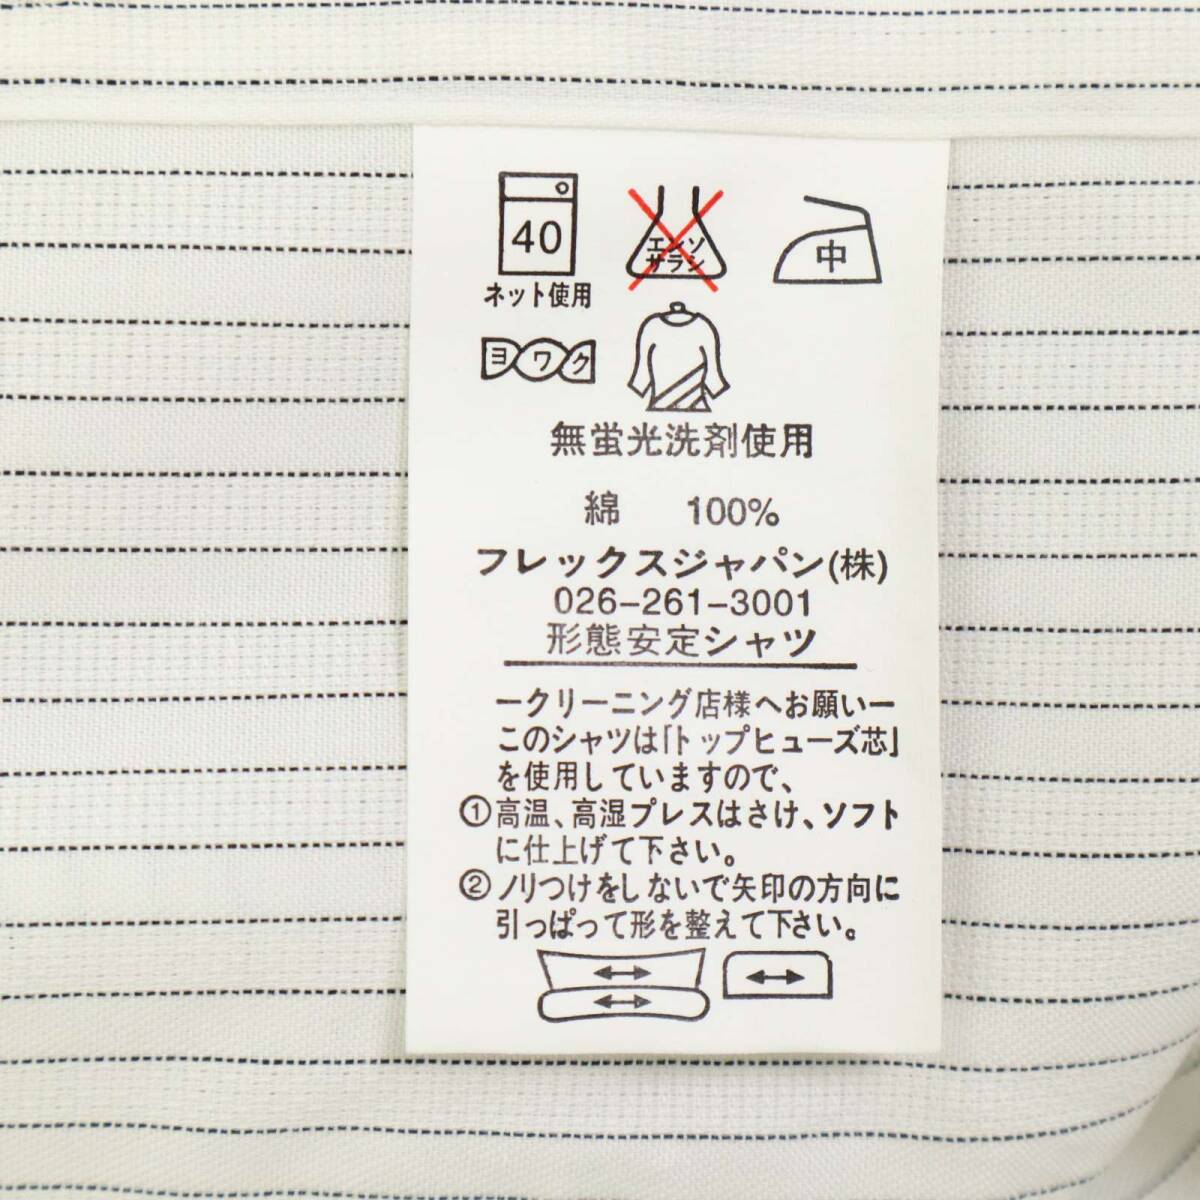 40
ネット使用
エンソ
サラシ
中
ヨワク
無蛍光洗剤使用
綿 100%
フレックスジャパン(株)
026-261-3001
形態安定シャツ
ークリーニング店様へお願いー
このシャツは「トップヒューズ芯」
を使用していますので、
①高温、高湿プレスはさけ、ソフト
に仕上げて下さい。
②ノリつけをしないで矢印の方向に
引っぱって形を整えて下さい。